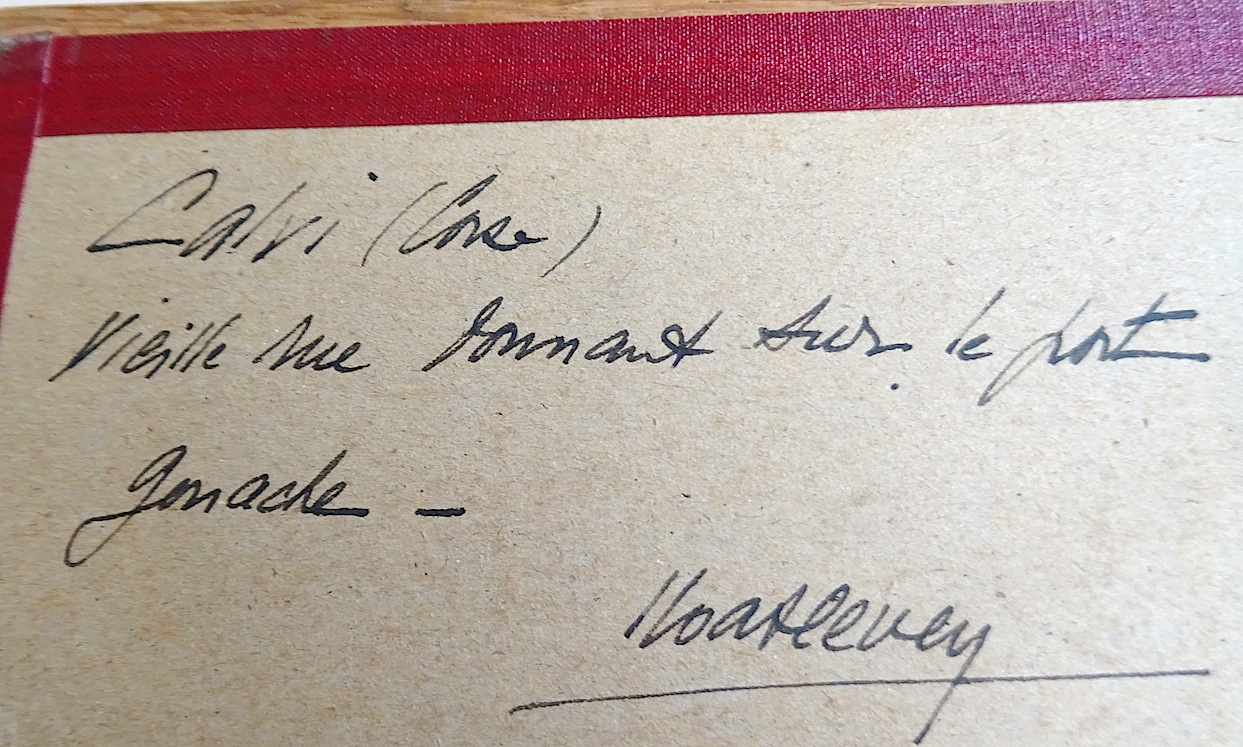 Calvi (Corse)
Vieille rue donnant sur le port
gouache -